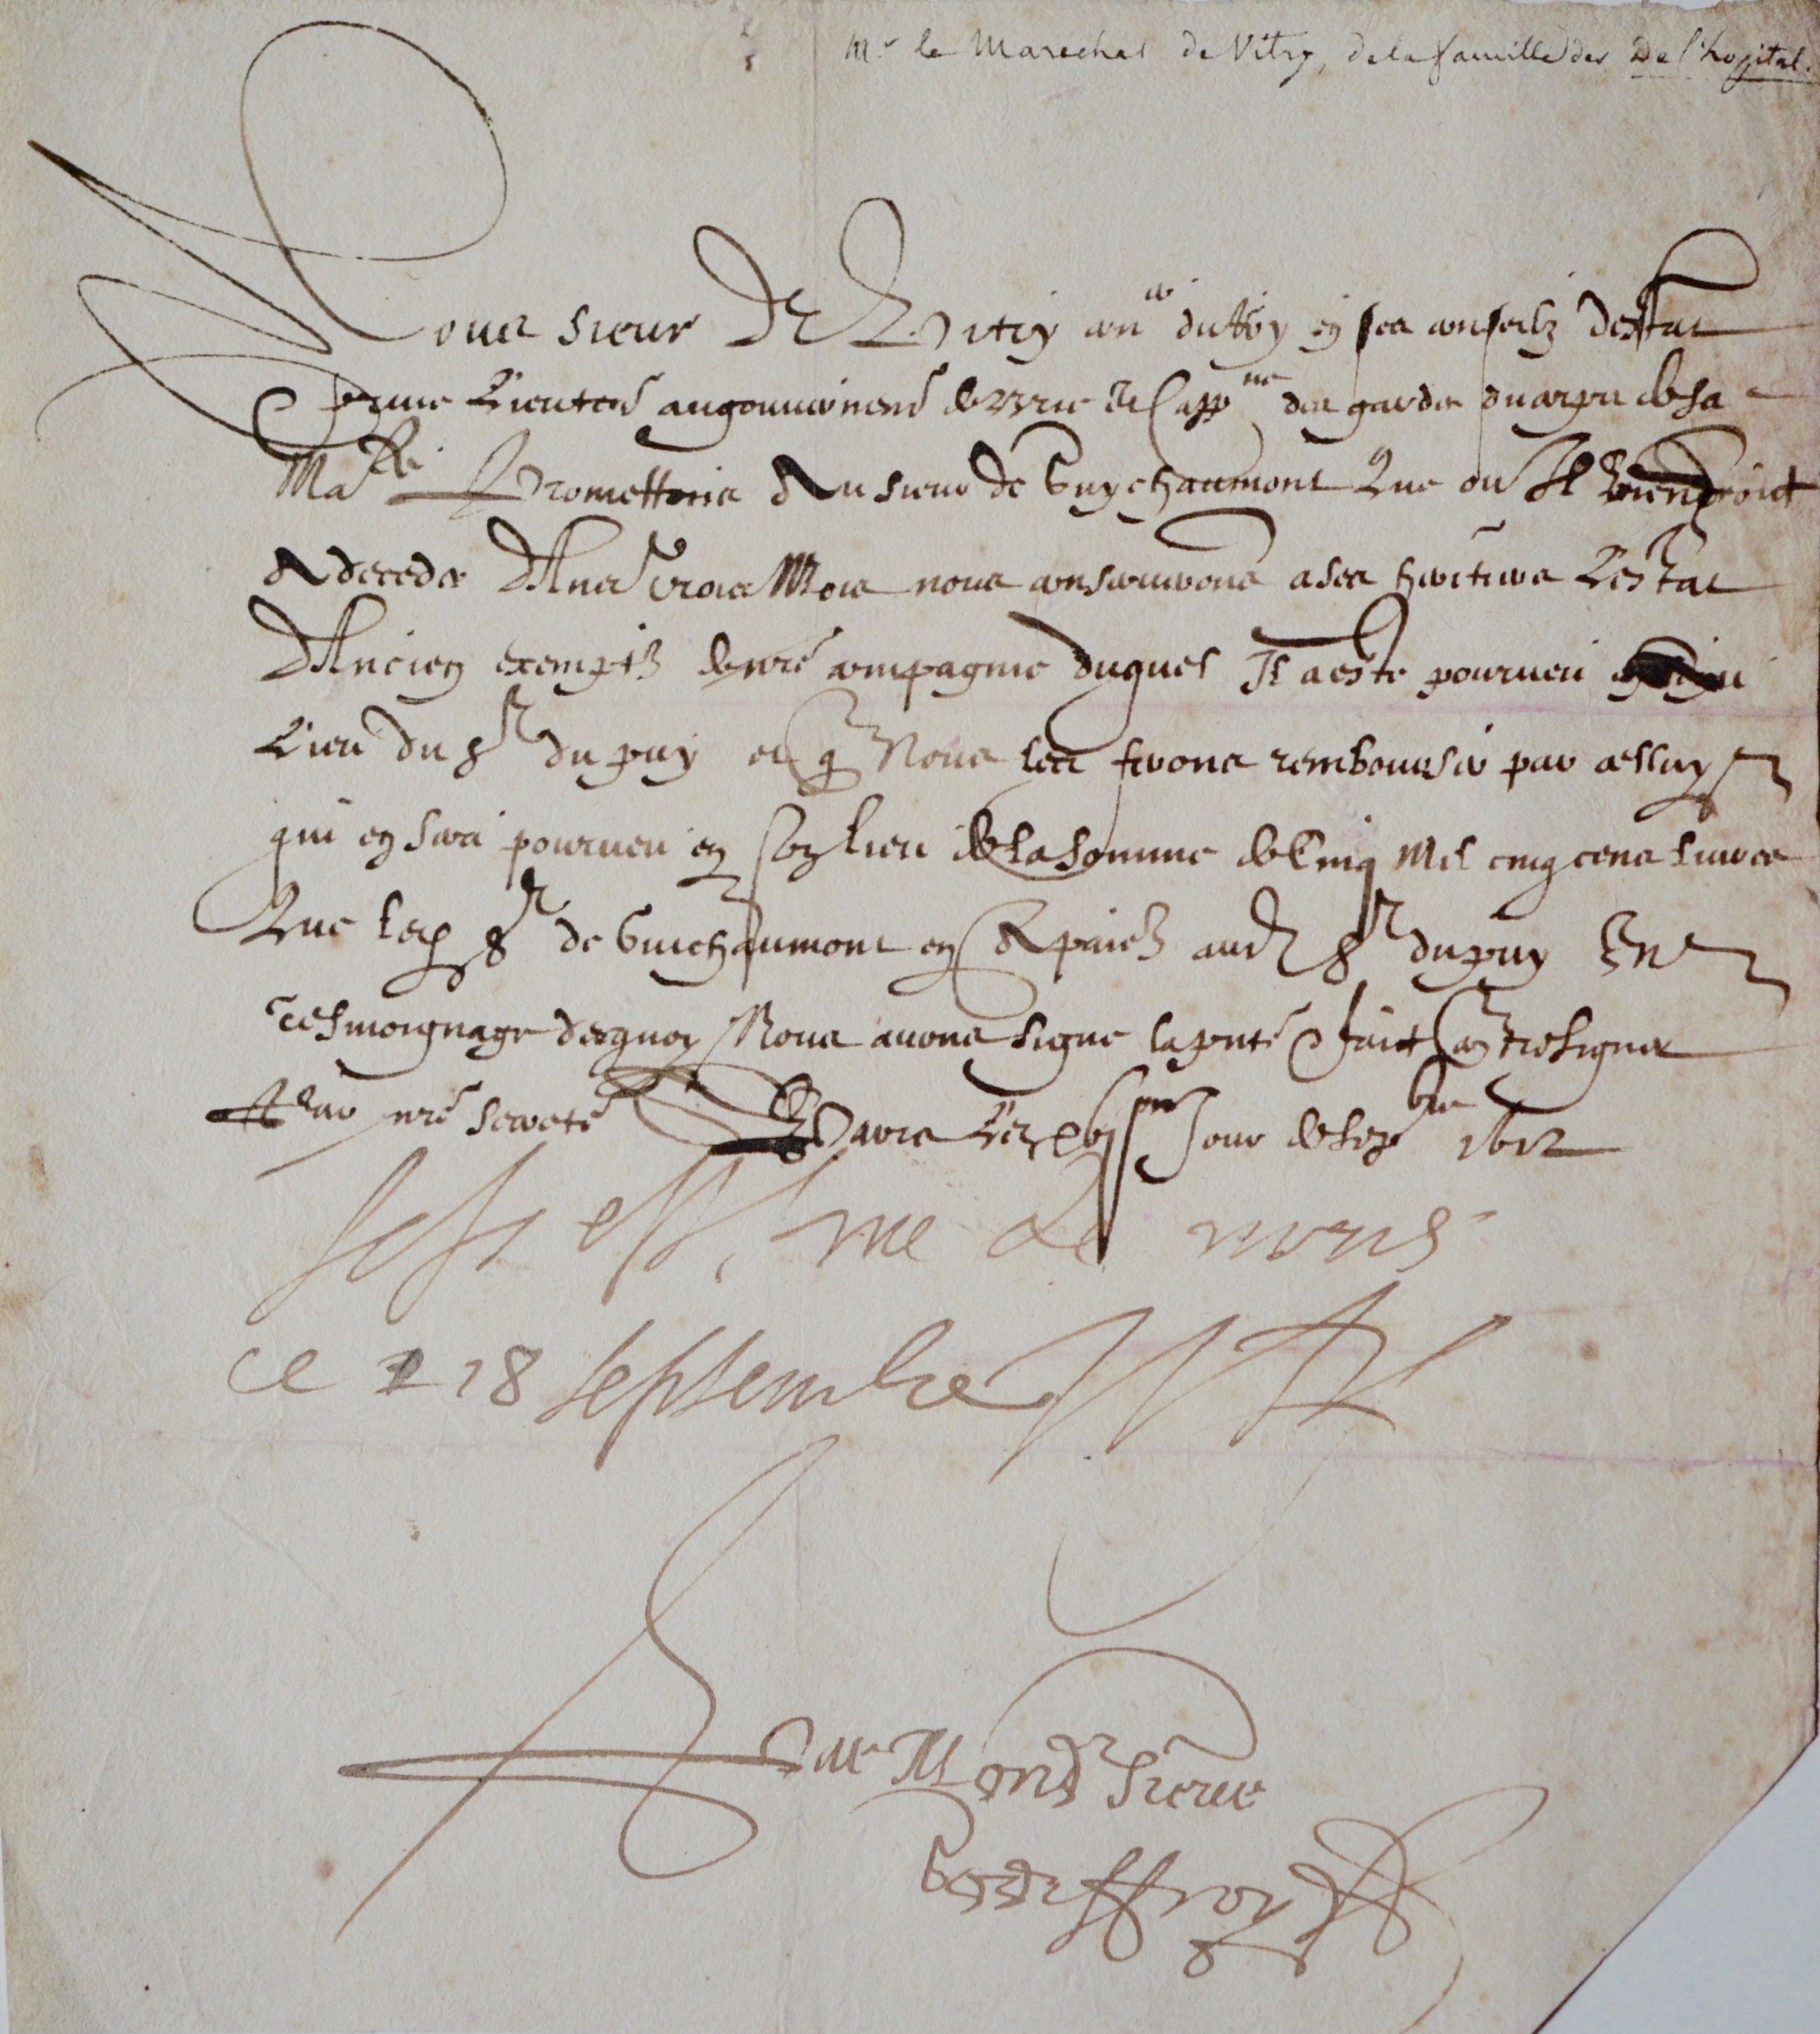 Mr le Marechal de Vitry, de la famille des De l'hopital.
Nous sieur De Vitry coner du Roy en ses conseilz destat
et prive Lieuten̄ au gouvernem̄ de Brie et Cappne des gardes du corps de sa
Matte Promettons Au sieur de Guychaumont Que ou Il viendroit
A deceder Dans trois Mois nous conserverons a ses heritiers L'estat
D'Ancien exempt de nr̄e compagnie duquel Il a este pourveu au
Lieu du sr du puy et q Nous les ferons rembourser par celluy
qui en sera pourveu en son lieu de la somme de Cinq Mil cinq cens livres
Que led sr de Guichaumont en A paiez aud sr du puy En
tesmoignage dequoy Nous avons signe la pnte & faict contresigner
Par nr̄e secretē A Paris Le xviijme Jour de sepbre 1612
ce 18 septembre
Par Mond Sieur